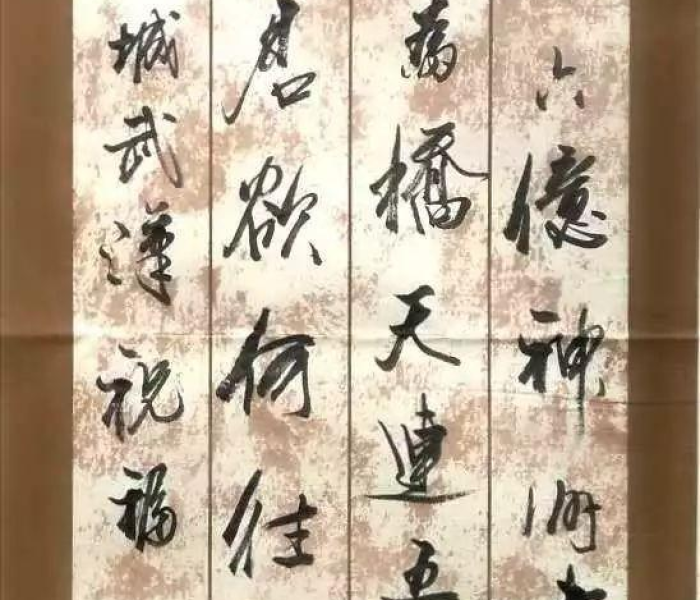 六億神州
為橋天連五
君欲何往
城武漢祝福